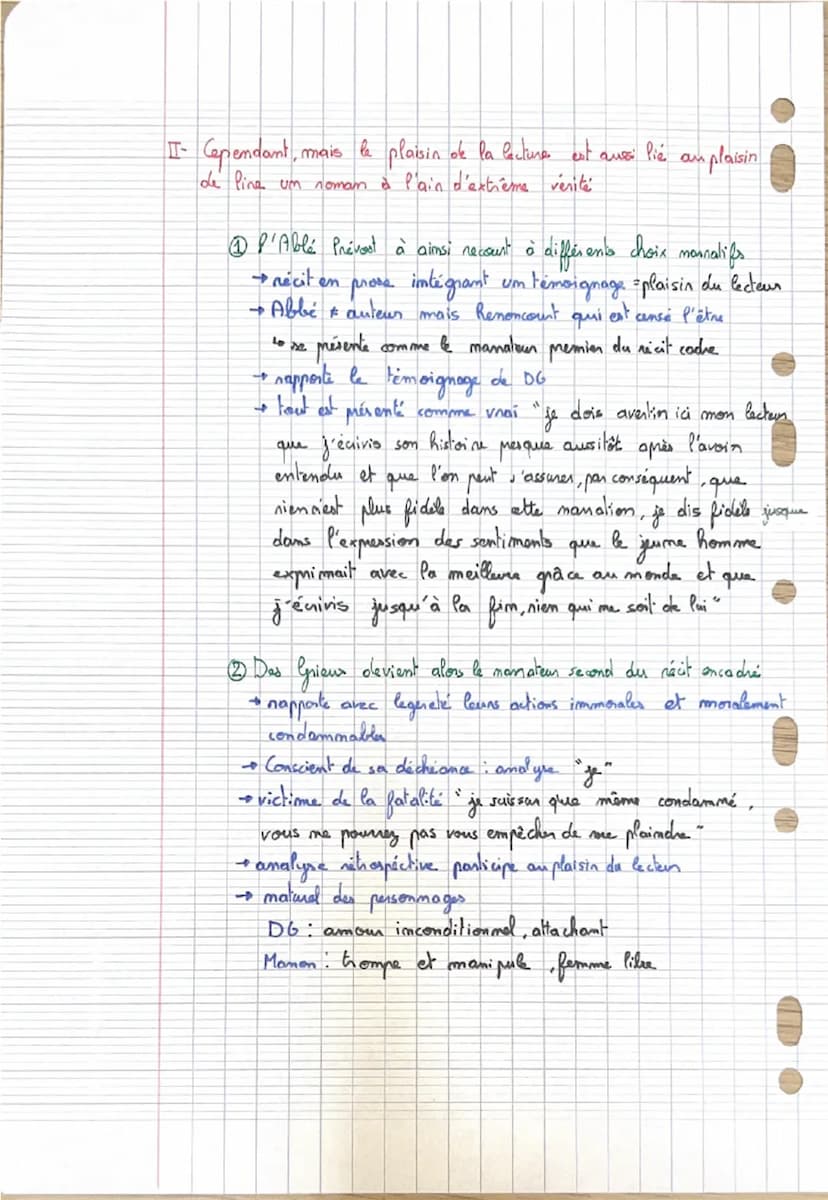 II- Cependant, mais le plaisir de la lecture est aussi lié au plaisir
de lire un roman à l'air d'extrême vérité
① l'Abbé Prévost à ainsi recourt à différents choix narratifs
→ récit en prose intégrant un témoignage = plaisir du lecteur
→ Abbé ≠ auteur mais Renoncourt qui est censé l'être
↳ se présente comme le narrateur premier du récit cadre
→ rapporte le témoignage de DG
→ tout est présenté comme vrai "je dois avertir ici mon lecteur
que j'écrivis son histoire presque aussitôt après l'avoir
entendu et que l'on peut s'assurer, par conséquent, que
rien n'est plus fidèle dans cette narration, je dis fidèle jusque
dans l'expression des sentiments que le jeune homme
exprimait avec la meilleure grâce au monde et que
j'écrivis jusqu'à la fin, rien qui ne soit de lui"
② Des Grieux devient alors le narrateur second du récit encadré
→ rapporte avec legereté leurs actions immorales et moralement
condammables
→ Conscient de sa déchéance : analyse "je"
→ victime de la fatalité "je suis sur que même condammé,
vous me pourrez pas vous empêcher de me plaindre"
→ analyse rétrospéctive participe au plaisir du lecteur
→ naturel des personnages
DG : amour inconditionnel, attachant
Manon : trompe et manipule, femme libre